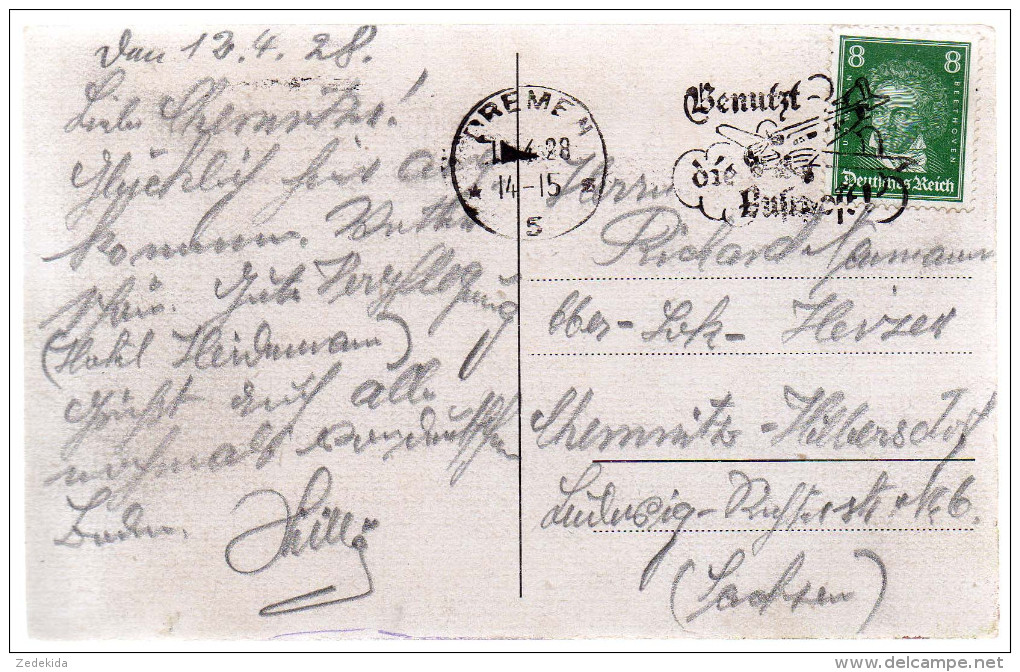 Den 13.4.28.
Liebe Chemnitzer!
Glücklich hier an
kommen. Wetter
schön. Gute Verpfleg
ung
(Hotel Heidemann)
Grüßt Euch alle
nochmals
Boden.
Willy
BREMEN
4.28
14-15
5
Benutzt
die
Luftpost!
8 8
BEETHOVEN
Deutsches Reich
Herrn
Richard Naumann
Ober-Lok-Heizer
Chemnitz-Hilbersdorf
Ludwig-Richterstr. No 6.
(Sachsen)
Zedekida
delcampe.net